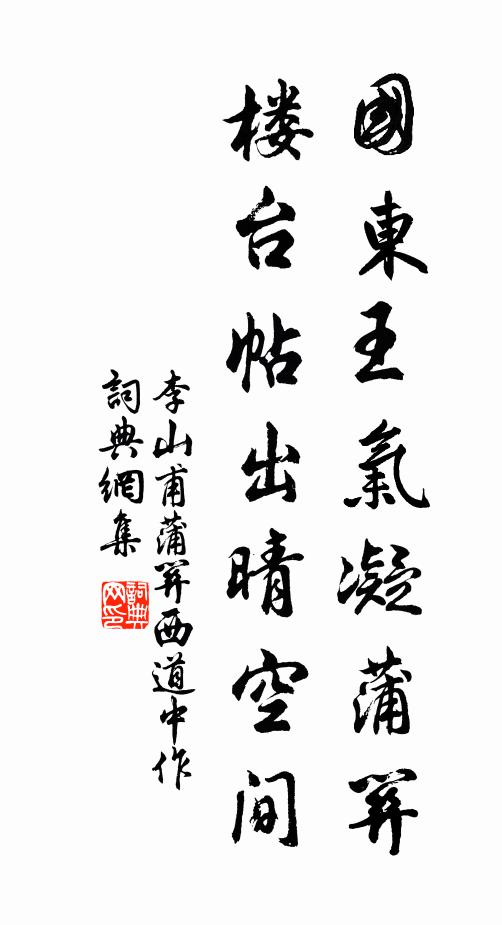 國東王氣凝蒲關
楼台帖出晴空间
李山甫蒲關西道中作
詞典網集
詞典网印